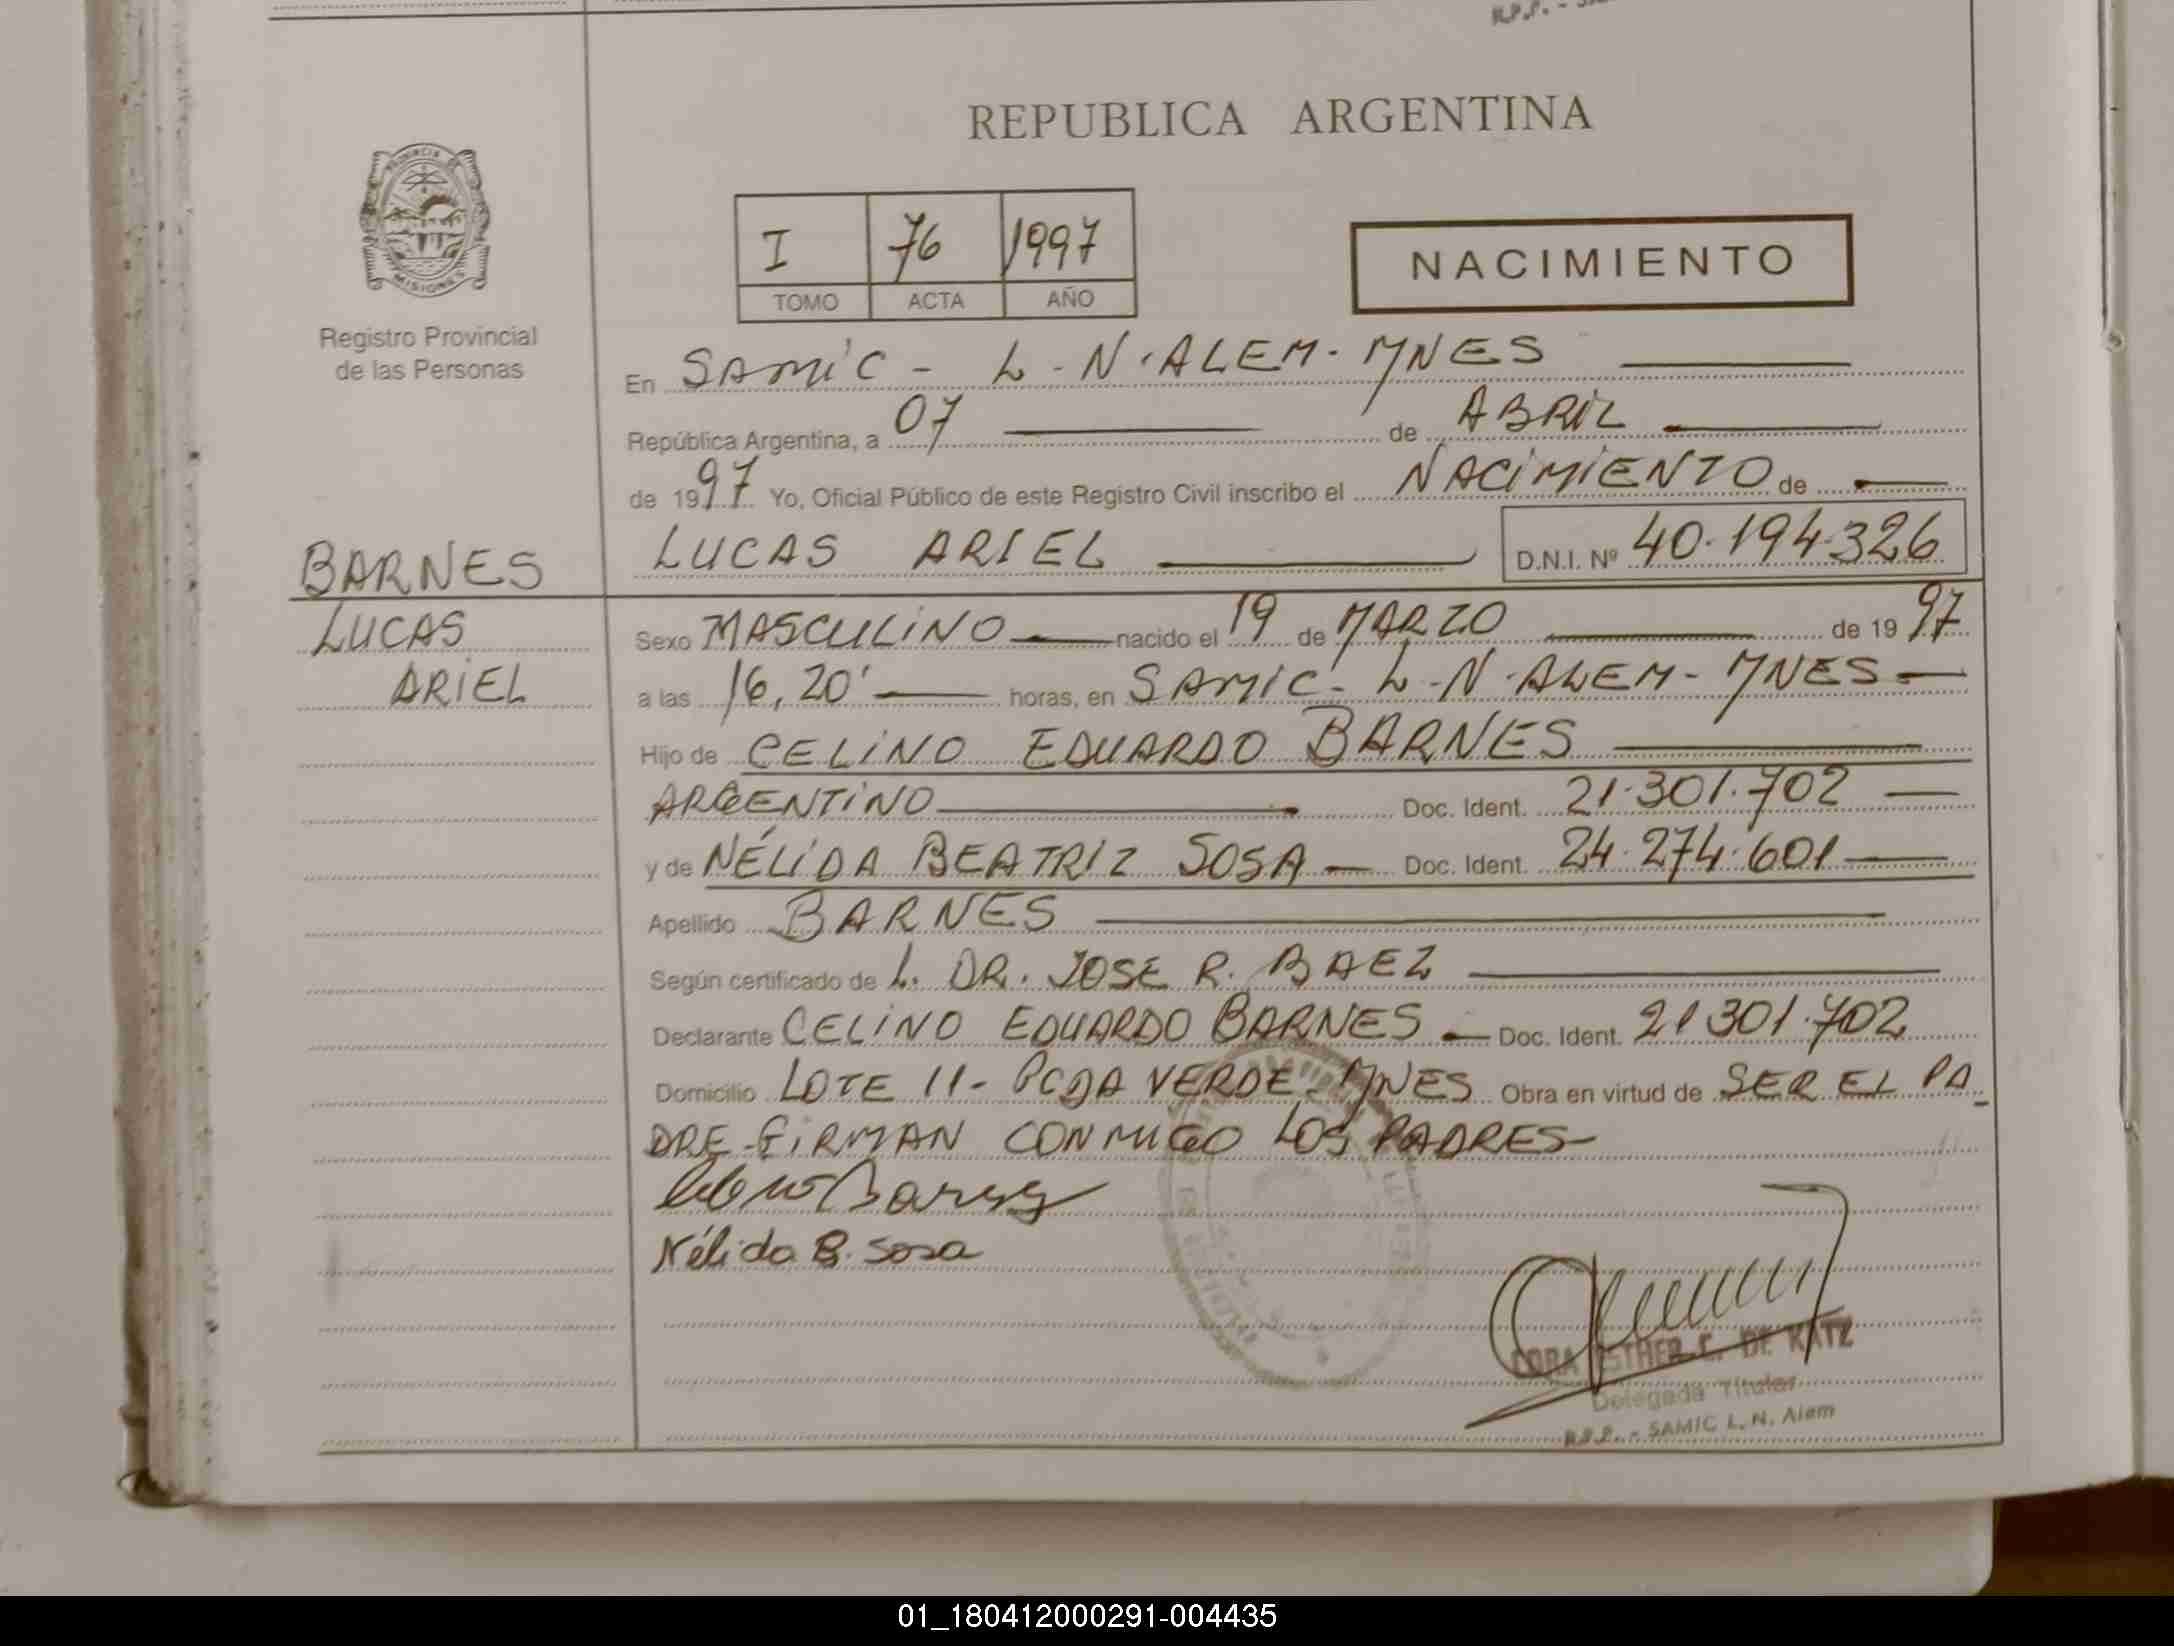 REPUBLICA ARGENTINA
PROVINCIA DE
MISIONES
Registro Provincial
de las Personas
I 76 1997
TOMO ACTA AÑO
NACIMIENTO
En SAMIC - L-N-ALEM-MNES
República Argentina, a 07 de ABRIL
de 1997 Yo, Oficial Público de este Registro Civil inscribo el NACIMIENTO de
LUCAS ARIEL D.N.I. Nº 40.194.326
BARNES
LUCAS
ARIEL
Sexo MASCULINO nacido el 19 de MARZO de 1997
a las 16,20' horas, en SAMIC- L-N-ALEM-MNES
Hijo de CELINO EDUARDO BARNES
ARGENTINO Doc. Ident. 21.301.702
y de NÉLIDA BEATRIZ SOSA Doc. Ident. 24.274.601
Apellido BARNES
Según certificado de L. DR. JOSE R. BAEZ
Declarante CELINO EDUARDO BARNES Doc. Ident. 21301.702
Domicilio LOTE 11- PCDA VERDE-MNES Obra en virtud de SER EL PA
DRE-FIRMAN CONMIGO LOS PADRES-
Nélida B. Sosa
CORA ESTHER C. DE KATZ
Delegada Titular
R.P.P. - SAMIC L. N. Alem
01_180412000291-004435